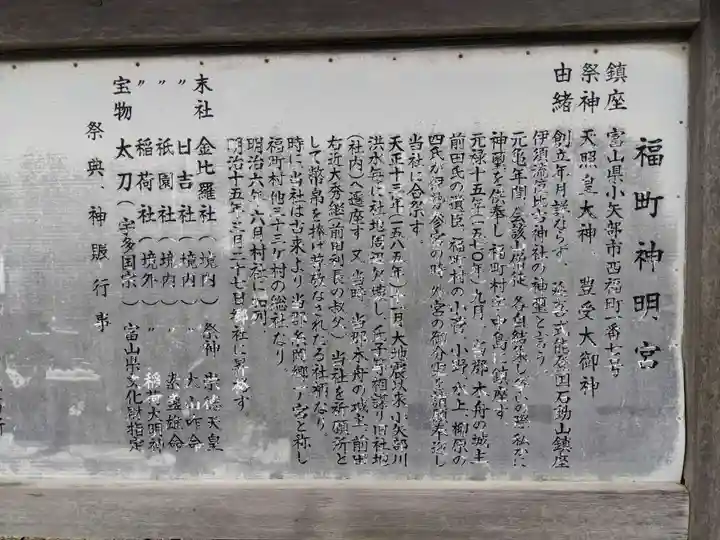 福町神明宮
鎮座 富山県小矢部市西福町一番七号
祭神 天照皇大神、豊受大御神
由緒 創立年月詳ならず、延喜式能登国石動山鎮座
伊須流岐比古神社の神霊と言う。
元亀年間、会該山僧徒、各自結束し争いの際、私かに
神霊を供奉し福町村字中島に鎮座す。
元禄十五年(一五七〇年)九月、当郡、木舟の城主
前田氏の遺臣、福町村の小宮、小野、水上、柳原の
四氏が伊勢参宮の時、外宮の御分霊を請願奉遷し
当社に合祭す。
天正十三年(一五八五年)十一月大地震以来小矢部川
洪水毎に社地周辺欠壊し、氏子等相謀り旧社地
(社内)へ遷座す。又、当時、当郡木舟の城主、前田
右近大秀継(前田利長の叔父)当社を祈願所と
して幣帛を捧げ尊敬なされたる社柄なり。
時に、当社は古来より当郡糸岡郷一ノ宮と称し
福町村他三十三ヶ村の総社なり。
明治六年六月村社に加列
明治十五年三月二十七日郷社に昇格す。
末社 金比羅社(境内)祭神 崇徳天皇
〃 日吉社(境内)〃 大山咋命
〃 祇園社(境内)〃 素盞雄命
〃 稲荷社(境外)〃 稲荷大明神
宝物 太刀(宇多国宗)富山県文化財指定
祭典、神賑行事